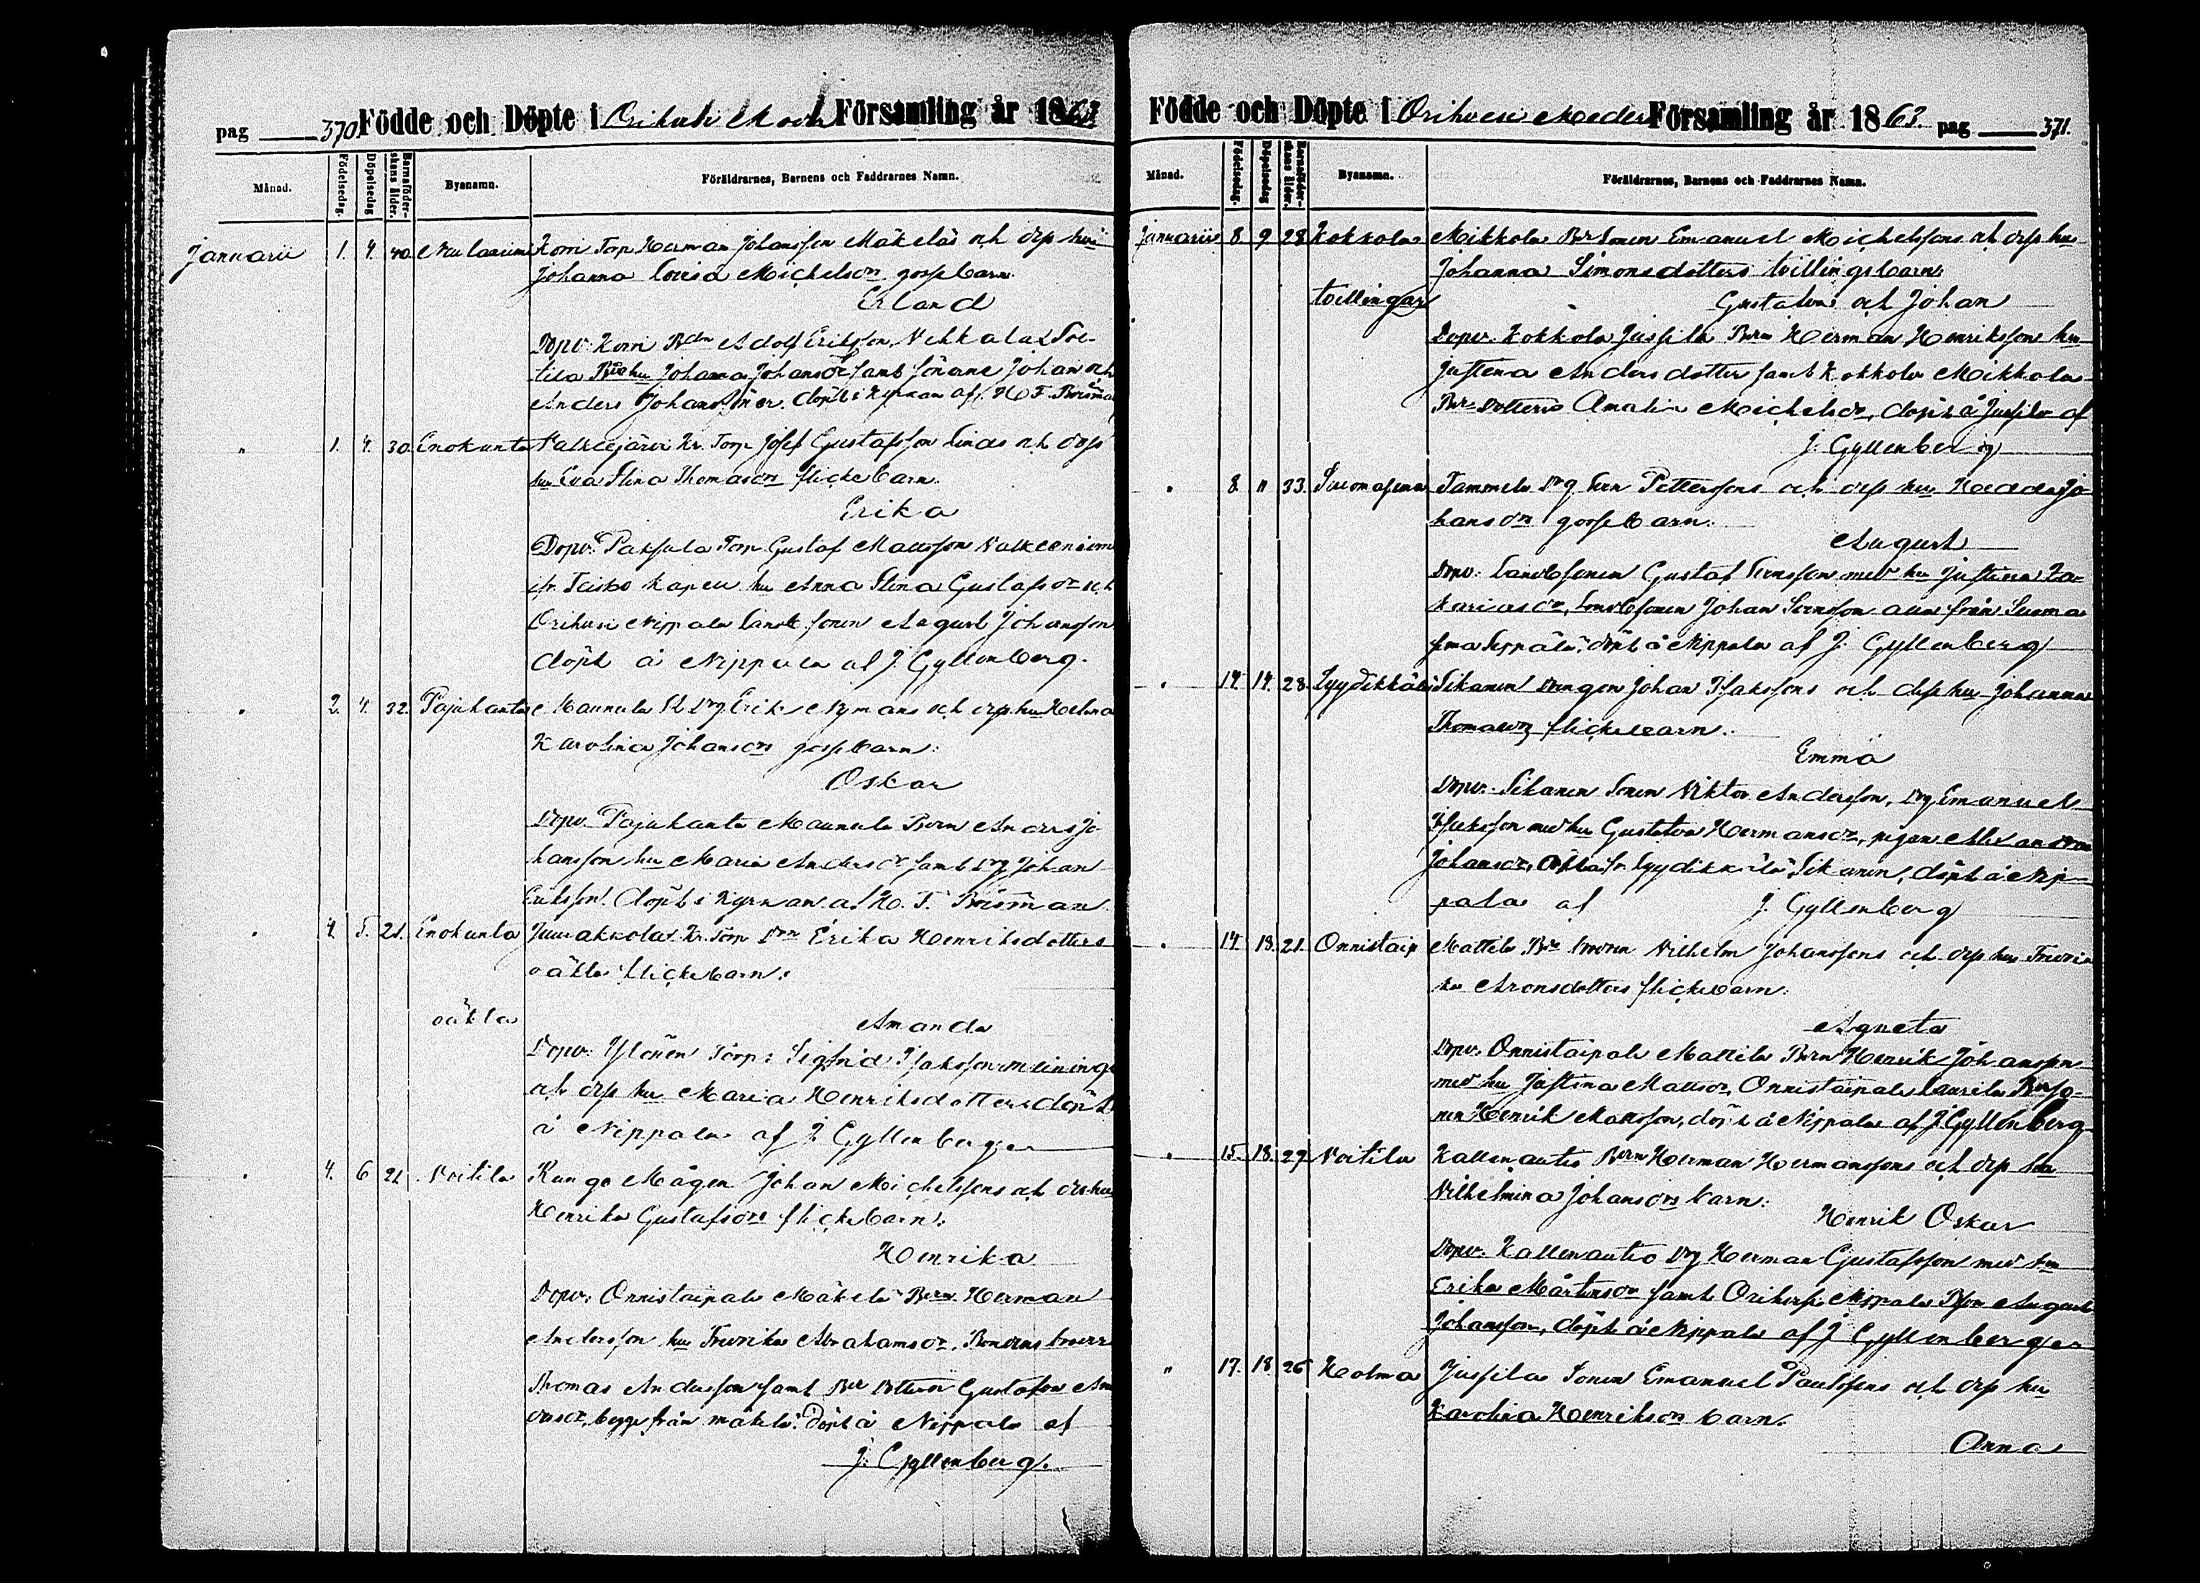 pag 370 Födde och Döpte i Orihvesi Moder Församling år 1863
Månad. Födelsedag. Döpelsedag Barnaföderskans ålder. Bysnamn. Föräldrarnes, Barnens och Faddrarnes Namn.
Januarii 1. 4. 40. Korri Torp Herman Johansson Mäkeläs och dess hus
Johanna Lovisa Michelsdrs gossebarn
Erland
Dopv: Korri Adolf Eriksson, Vehkalax Soi-
tila hu Johanna Johansdr samt sönerne Johan och
Anders Johanssöner. döpt i kyrkan af H. F.
" 1. 4. 30. Enokunta Valkeejärvi Kr. Torp Josef Gustafsson Linds och dess
hu Eva Stina Thomasdrs flickebarn.
Erika
Dopv: Paksula Torp Gustaf Mattsson Valkeeniemi
fr. Teisko kapell hu Anna Stina Gustafsdr och
Orihvesi Nippala Landb. sonen August Johansson
döpt å Nippala af J. Gyllenberg.
" 2. 4. 32. Pajukanta Maunula Drg Erik Nymans och dess hu Helena
Karolina Johansdrs gossebarn:
Oskar
Dopv. Pajukanta Maunula Anders Jo-
hansson hu Maria Andersdr samt Drg Johan
Eriksson. döpt i Kyrkan af H. F.
" 4. 5. 21. Enokunta Kr. Torp Erika Henriksdotters
oäkta flickebarn:
oäkta
Amanda
Dopv: Ylönen Torp: Sigfrid Isaksson
och dess hu Maria Henriksdotter döpt
å Nippala af J. Gyllenberg
" 4. 6 21. Voitila Runga Mågen Johan Michelssons och dess hu
Henrika Gustafsdrs flickebarn:
Henrika
Dopv: Onnistaipale Mäkelä Herman
Andersson hu Fredrika Abrahamsdr, Bondens broder
Thomas Andersson samt dottern Gustafva An-
dersdr, begge från mäkelä: Döpt å Nippala af
J. Gyllenberg.
Födde och Döpte i Orihvesi Moder Församling år 1863. pag 371.
Månad. Födelsedag. Döpelsedag Barnaföderskans ålder. Bysnamn. Föräldrarnes, Barnens och Faddrarnes Namn.
Januarii 8. 9 28 Kokkola Mikkola Sonen Emanuel Michelssons och dess hu
Johanna Simonsdotters tvillingebarn:
tvillingar Gustava och Johan
Dopv. Kokkola Jussila Herman Henriksson hu
Justina Andersdotter samt Kokkola Mikkola
dotter Amalia Michelsdr, döpt å Jussila af
J: Gyllenberg
" 8. 11 33. Suomasema Tammela Drg Petterssons och dess hu Hedda Jo-
hansdrs gossebarn:
August
Dopv: Landb sonen Gustaf Svensson med hu Justina Za-
kariasdr, Landb sonen Johan Svensson alla från Suoma
sema Seppälä: döpt å Nippala af J. Gyllenberg
" 14. 14. 28. Lyydikkälä Sikanen Drengen Johan Isakssons och dess hu Johanna
Thomasdrs flickebarn:
Emma
Dopv: Sikanen Sonen Viktor Andersson, Drg Emanuel
Isaksson med hu Gustava Hermansdr, pigan
Johansdr, alla fr Lyydikkälä Sikanen, döpt å Nip-
pala af J. Gyllenberg
" 14. 18. 21. Onnistaip Mattila broren Vilhelm Johanssons och dess hu Fredri-
ka Aronsdotters flickebarn:
Agneta
Dopv. Onnistaipale Mattila Henrik Johansson
med hu Justina Mattsdr, Onnistaipale Laurila so-
nen Henrik Mattsson, döpt å Nippala af J. Gyllenberg
" 15. 18. 29. Voitila Kallenautio Herman Hermanssons och dess hu
Vilhelmina Johansdrs barn:
Henrik Oskar
Dopv. Kallenautio Drg Herman Gustafsson med hu
Erika Mårtensdr samt Orihvesi Nippala August
Johansson, döpt å Nippala af J Gyllenberg
" 17. 18 26 Holma Jussila Sonen Emanuel Paulssons och dess hu
Karolina Henriksdrs barn.
Anna